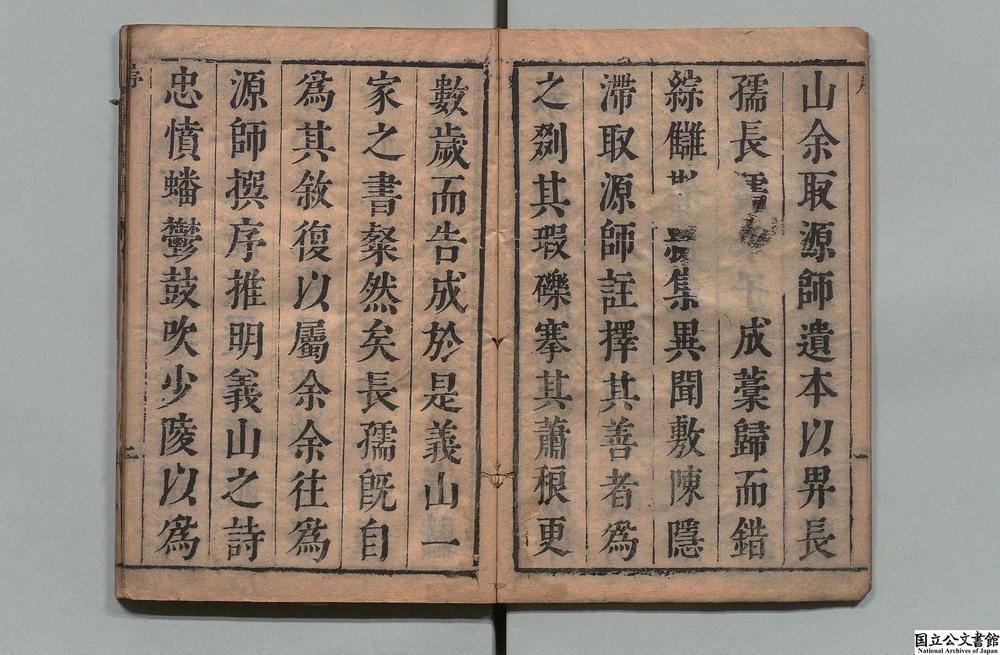 序
一
山余取源師遺本以畀長
孺長成藁歸而錯
綜讎集異聞敷陳隱
滯取源師註擇其善者爲
之剟其瑕礫搴其蕭稂更
數歲而告成於是義山一
家之書粲然矣長孺既自
爲其敘復以屬余余往爲
源師撰序推明義山之詩
忠憤蟠鬱鼓吹少陵以爲
序
二
国立公文書館
National Archives of Japan